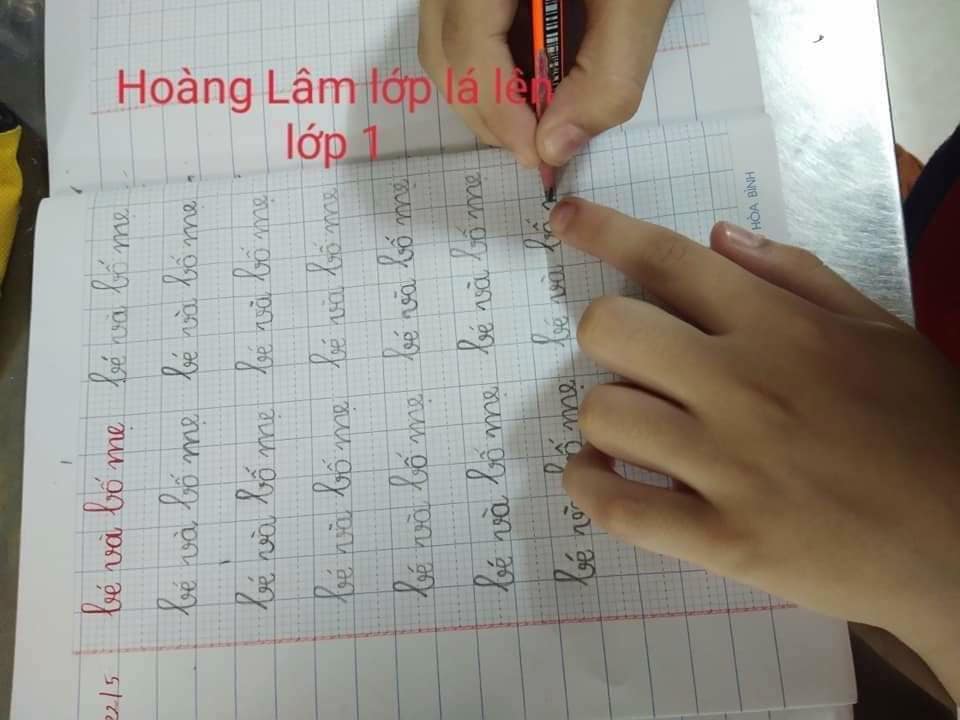 Hoàng Lâm lớp lá lên
lớp 1
22/5 bé và bố mẹ bé và bố mẹ
bé và bố mẹ bé và bố mẹ
bé và bố mẹ bé và bố mẹ
bé và bố mẹ bé và bố mẹ
bé và bố mẹ bé và bố mẹ
bé và bố mẹ bé và bố mẹ
bé và bố mẹ bé và bố
HÒA BÌNH